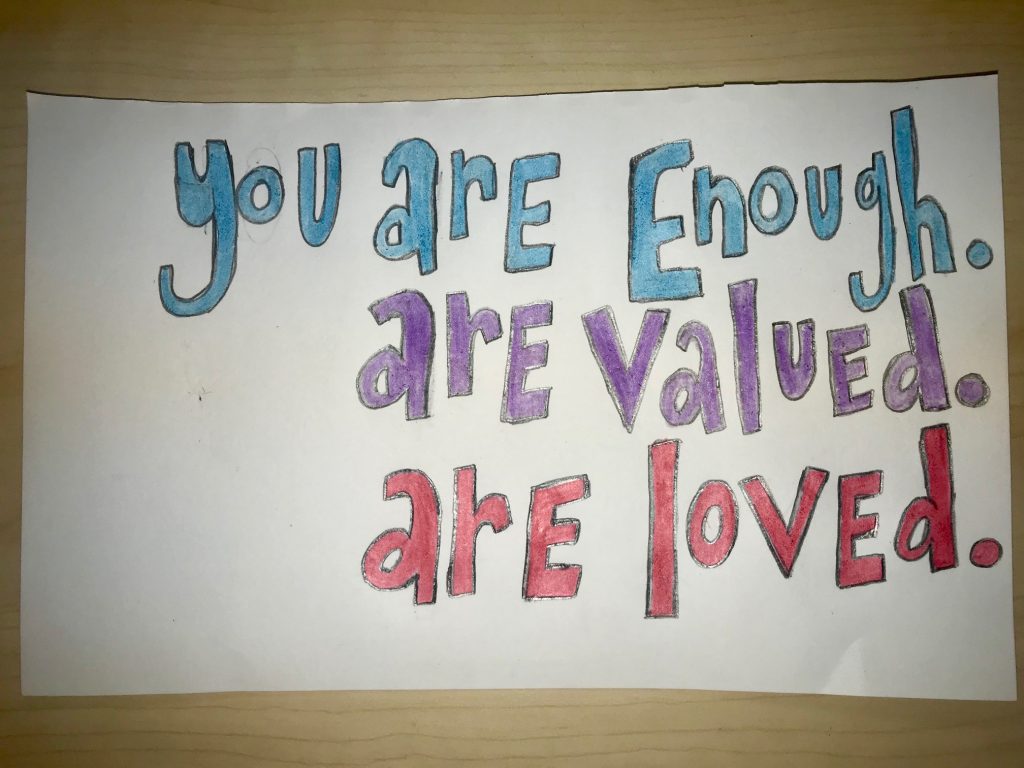 you are Enough.
are valued.
are loved.